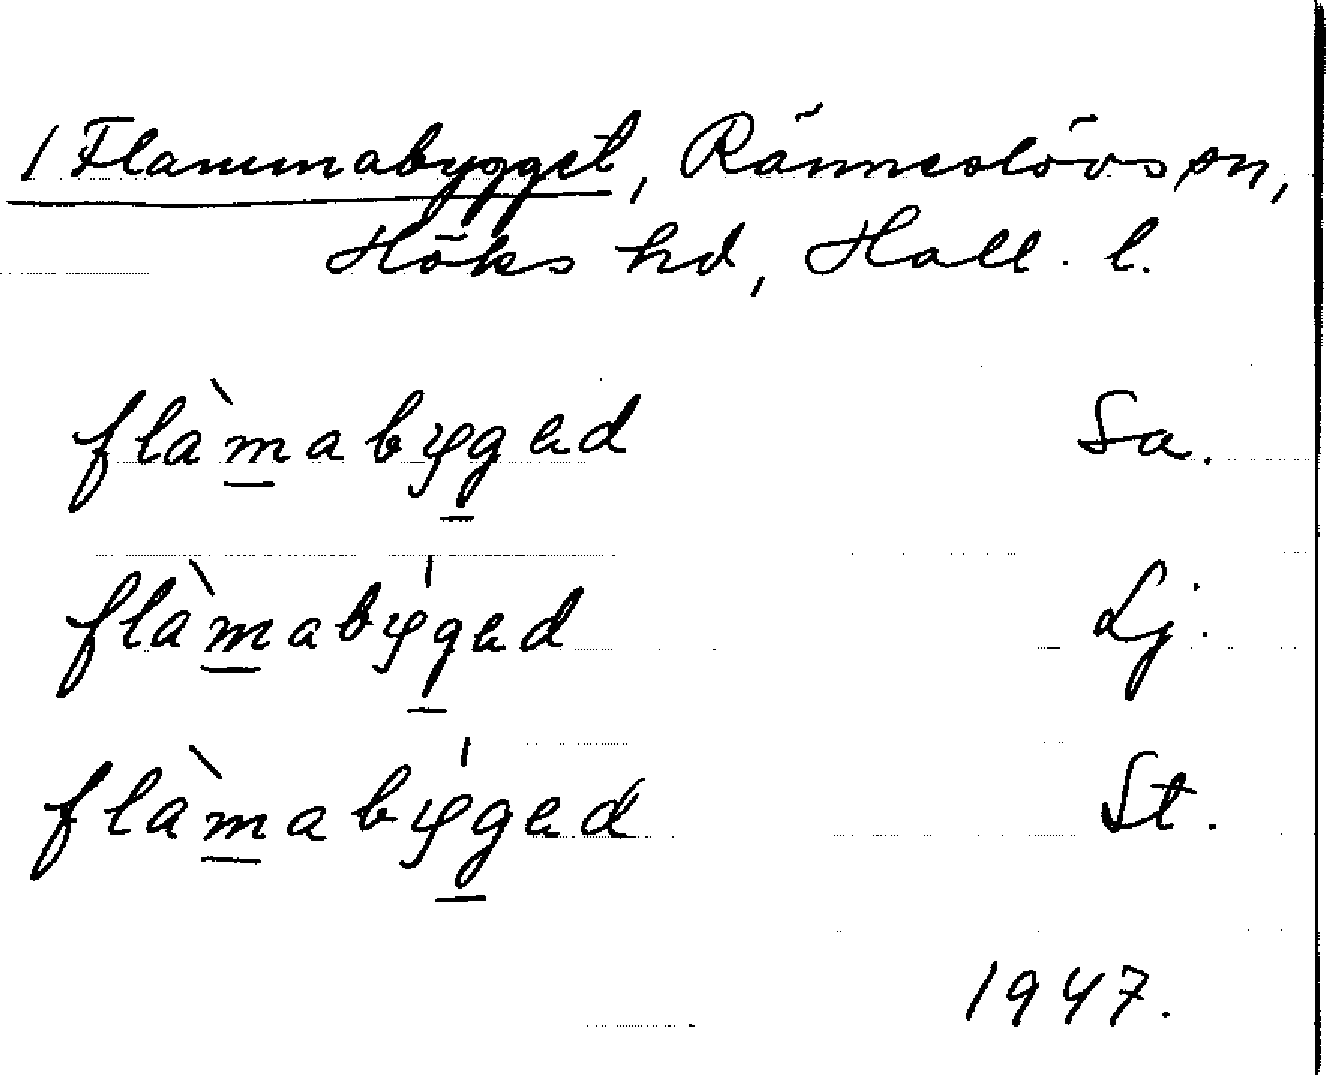 / Flammabygget, Ränneslövs sn,
Höks hd, Hall. l.
flàm̲abyg̲ed Sa.
flàm̲abýg̲ed Lj.
flàm̲abýg̲ed St.
1947.